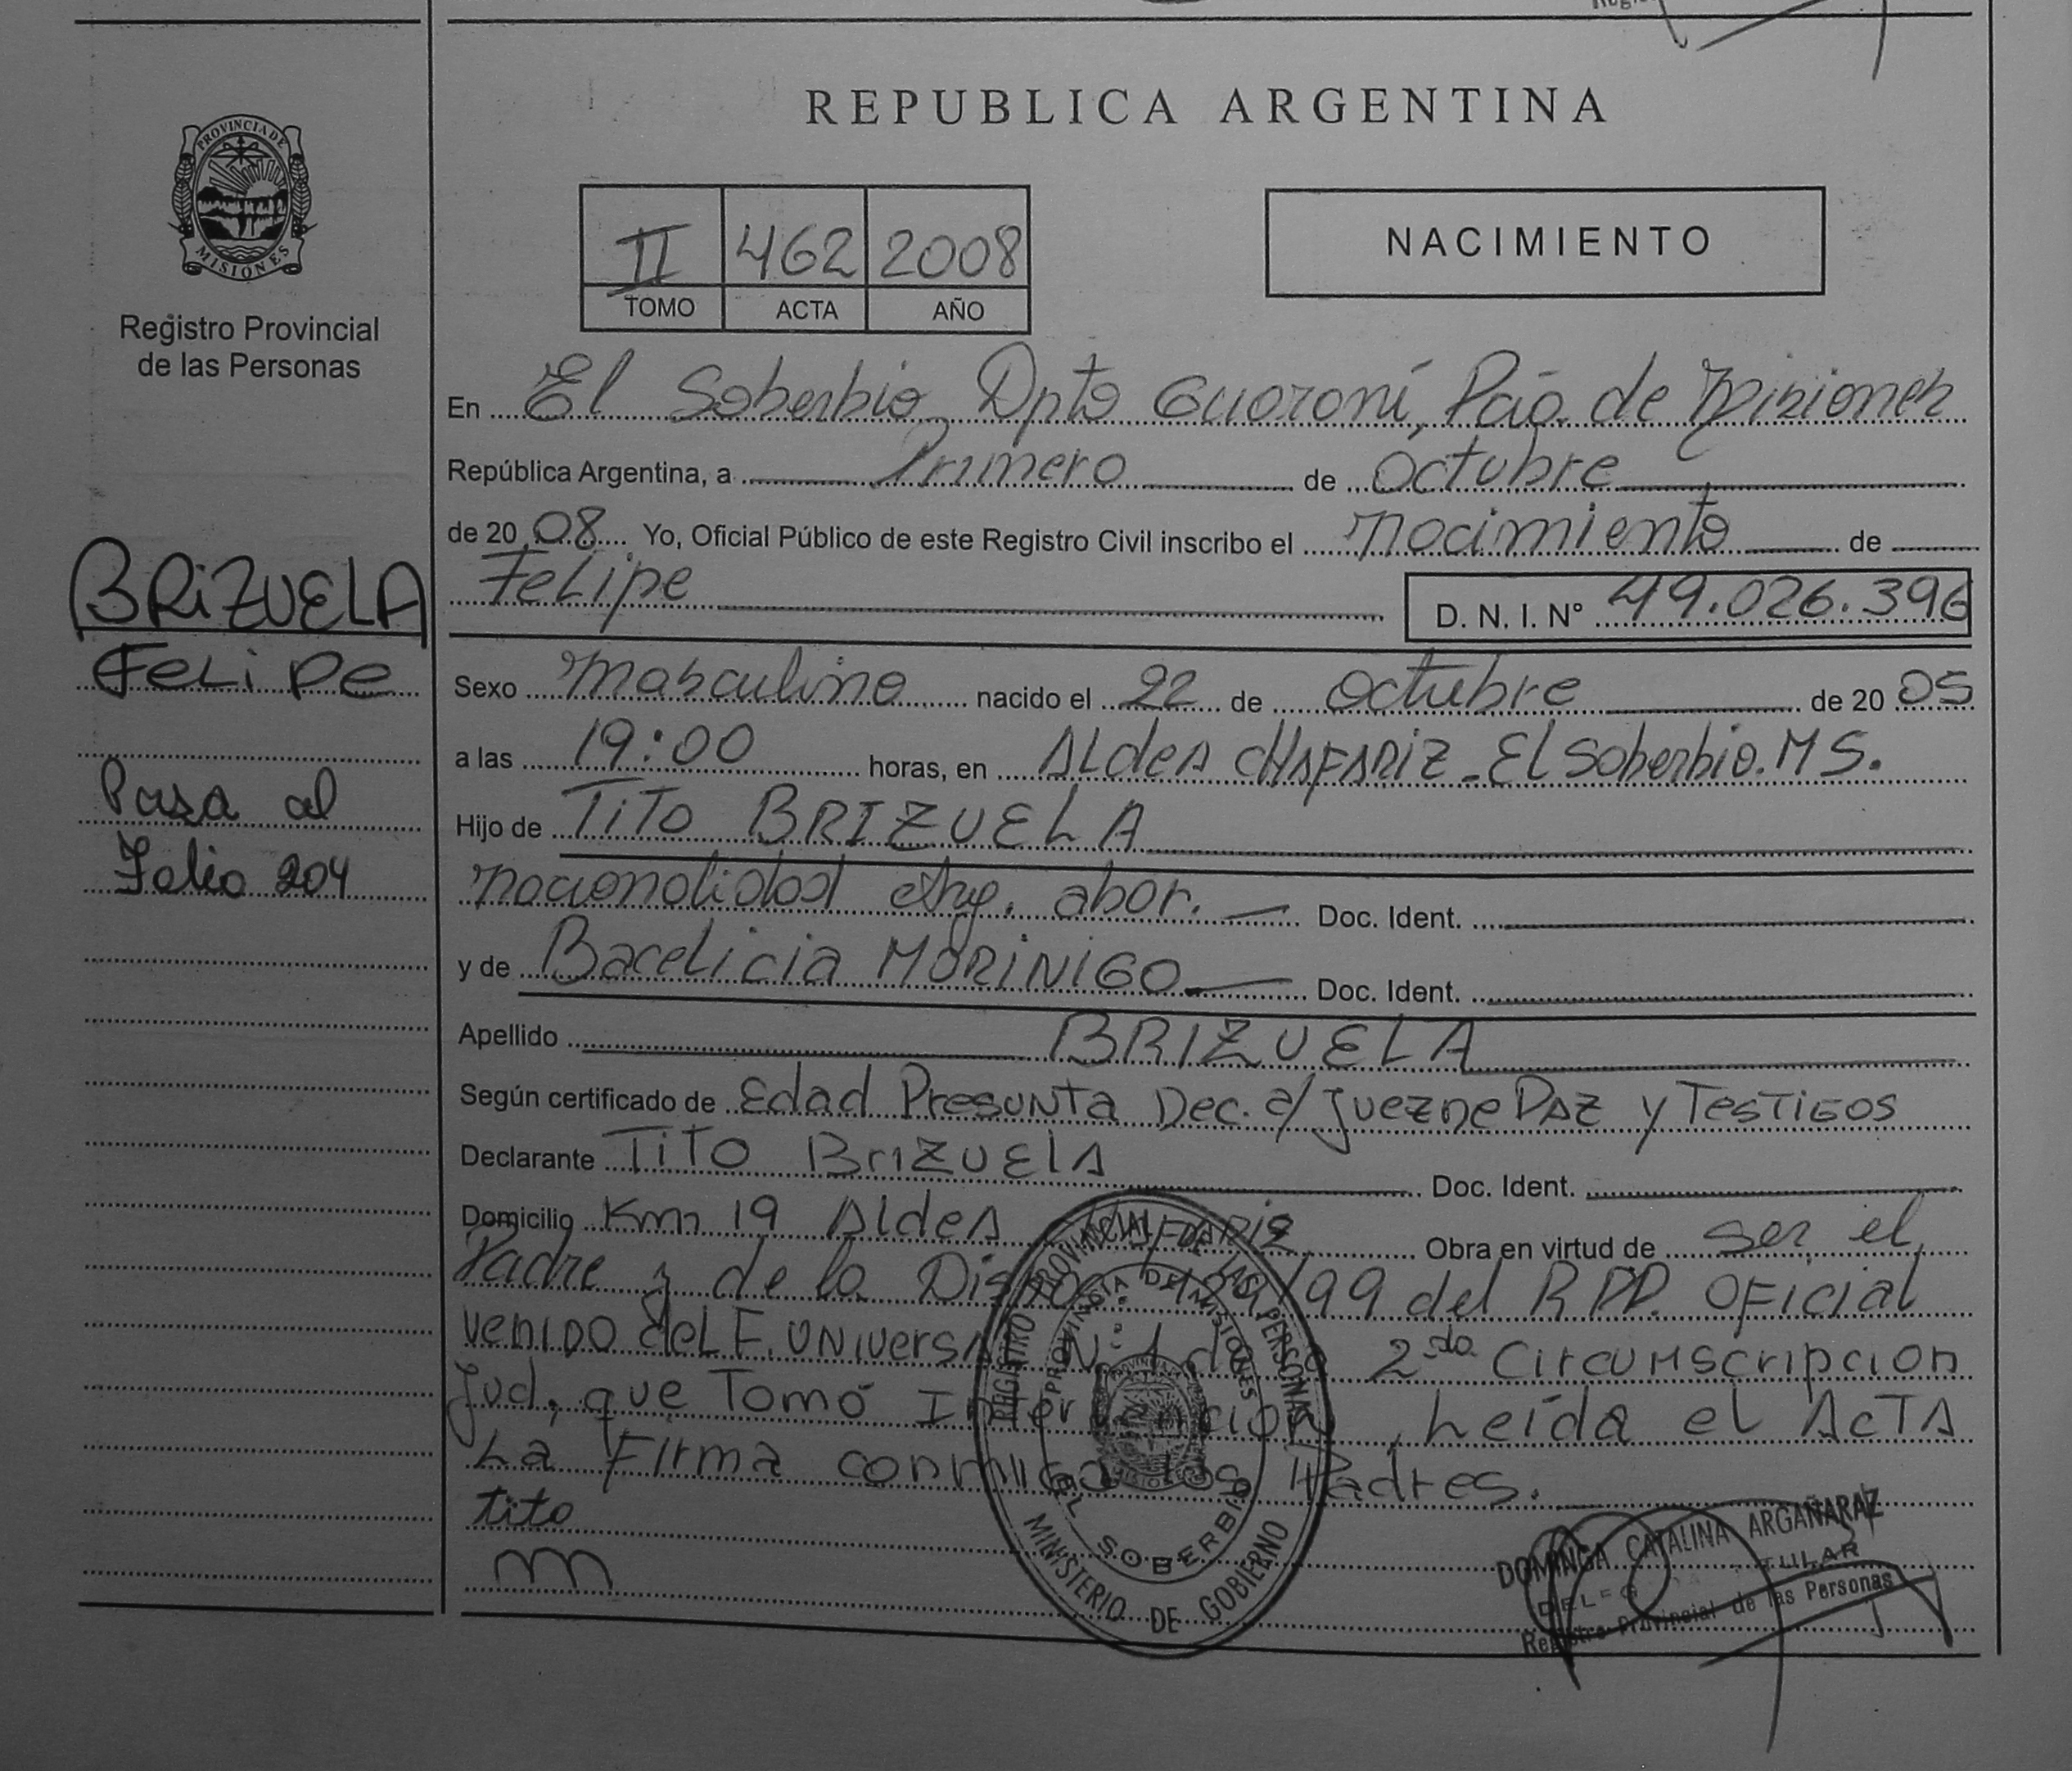 PROVINCIA DE
MISIONES
Registro Provincial
de las Personas
BRIZUELA
FeLipe
Pasa al
Folio 204
REPUBLICA ARGENTINA
II 462 2008
TOMO ACTA AÑO
NACIMIENTO
En El Soberbio Dpto Guaraní, Pcia. de Misiones
República Argentina, a Primero de octubre
de 20 08 Yo, Oficial Público de este Registro Civil inscribo el nacimiento de
FeLipe D. N. I. N° 49.026.396
Sexo masculino nacido el 22 de octubre de 20 05
a las 19:00 horas, en ALdeA CHAFARIZ - El Soberbio. MS.
Hijo de TiTo BRIZUELA
nacionalidad Arg. abor. Doc. Ident.
y de BaceLicia MORINIGO Doc. Ident.
Apellido BRIZUELA
Según certificado de Edad PresuNTa Dec. a/ Juez de PAZ y TesTIGOS
Declarante TiTO BrIZUElA Doc. Ident.
Domicilio Km 19 AldeA Obra en virtud de ser el
Padre y de la /99 del RPP. OFicial
del F. UNiversA N° 1 de 2da CircuNscripcion
Jud, que Tomó IntervenCion, Leída el AcTA
La Firma conmigo los Padres.
tito
REGISTRO PROVINCIAL DE LAS PERSONAS
PROVINCIA DE MISIONES
EL SOBERBIO
MINISTERIO DE GOBIERNO
DOMINGA CATALINA ARGAÑARAZ
TITULAR
Registro Provincial de las Personas